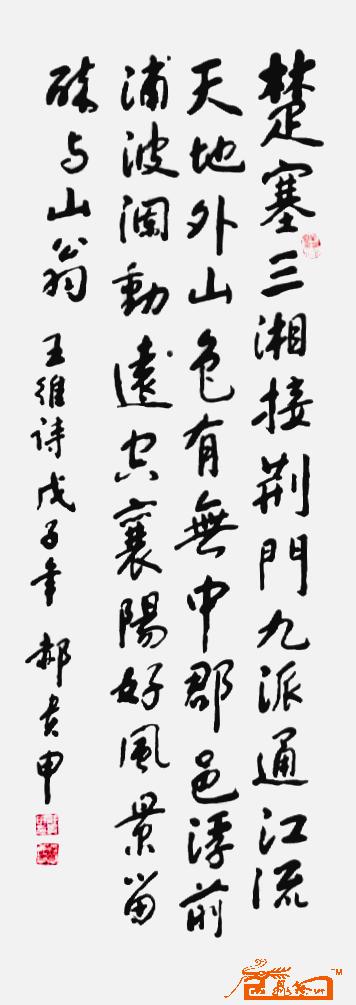 楚塞三湘接荆門九派通江流
天地外山色有無中郡邑浮前
浦波瀾動遠空襄陽好風景留
醉与山翁 王維诗戊子年 郝